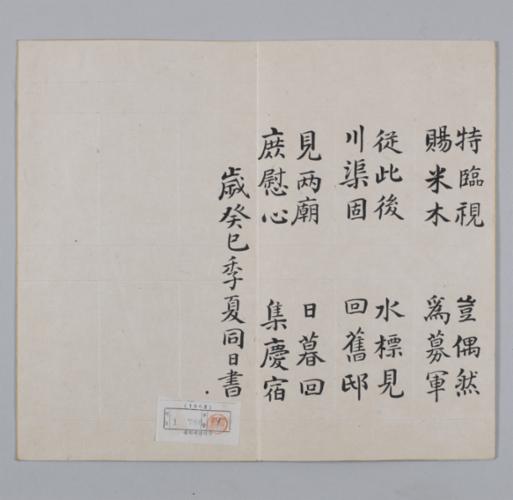 特臨視 豈偶然
賜米木 爲募軍
從此後 水標見
川渠固 回舊邸
見两廟 日暮回
庶慰心 集慶宿
歲癸巳季夏同日書